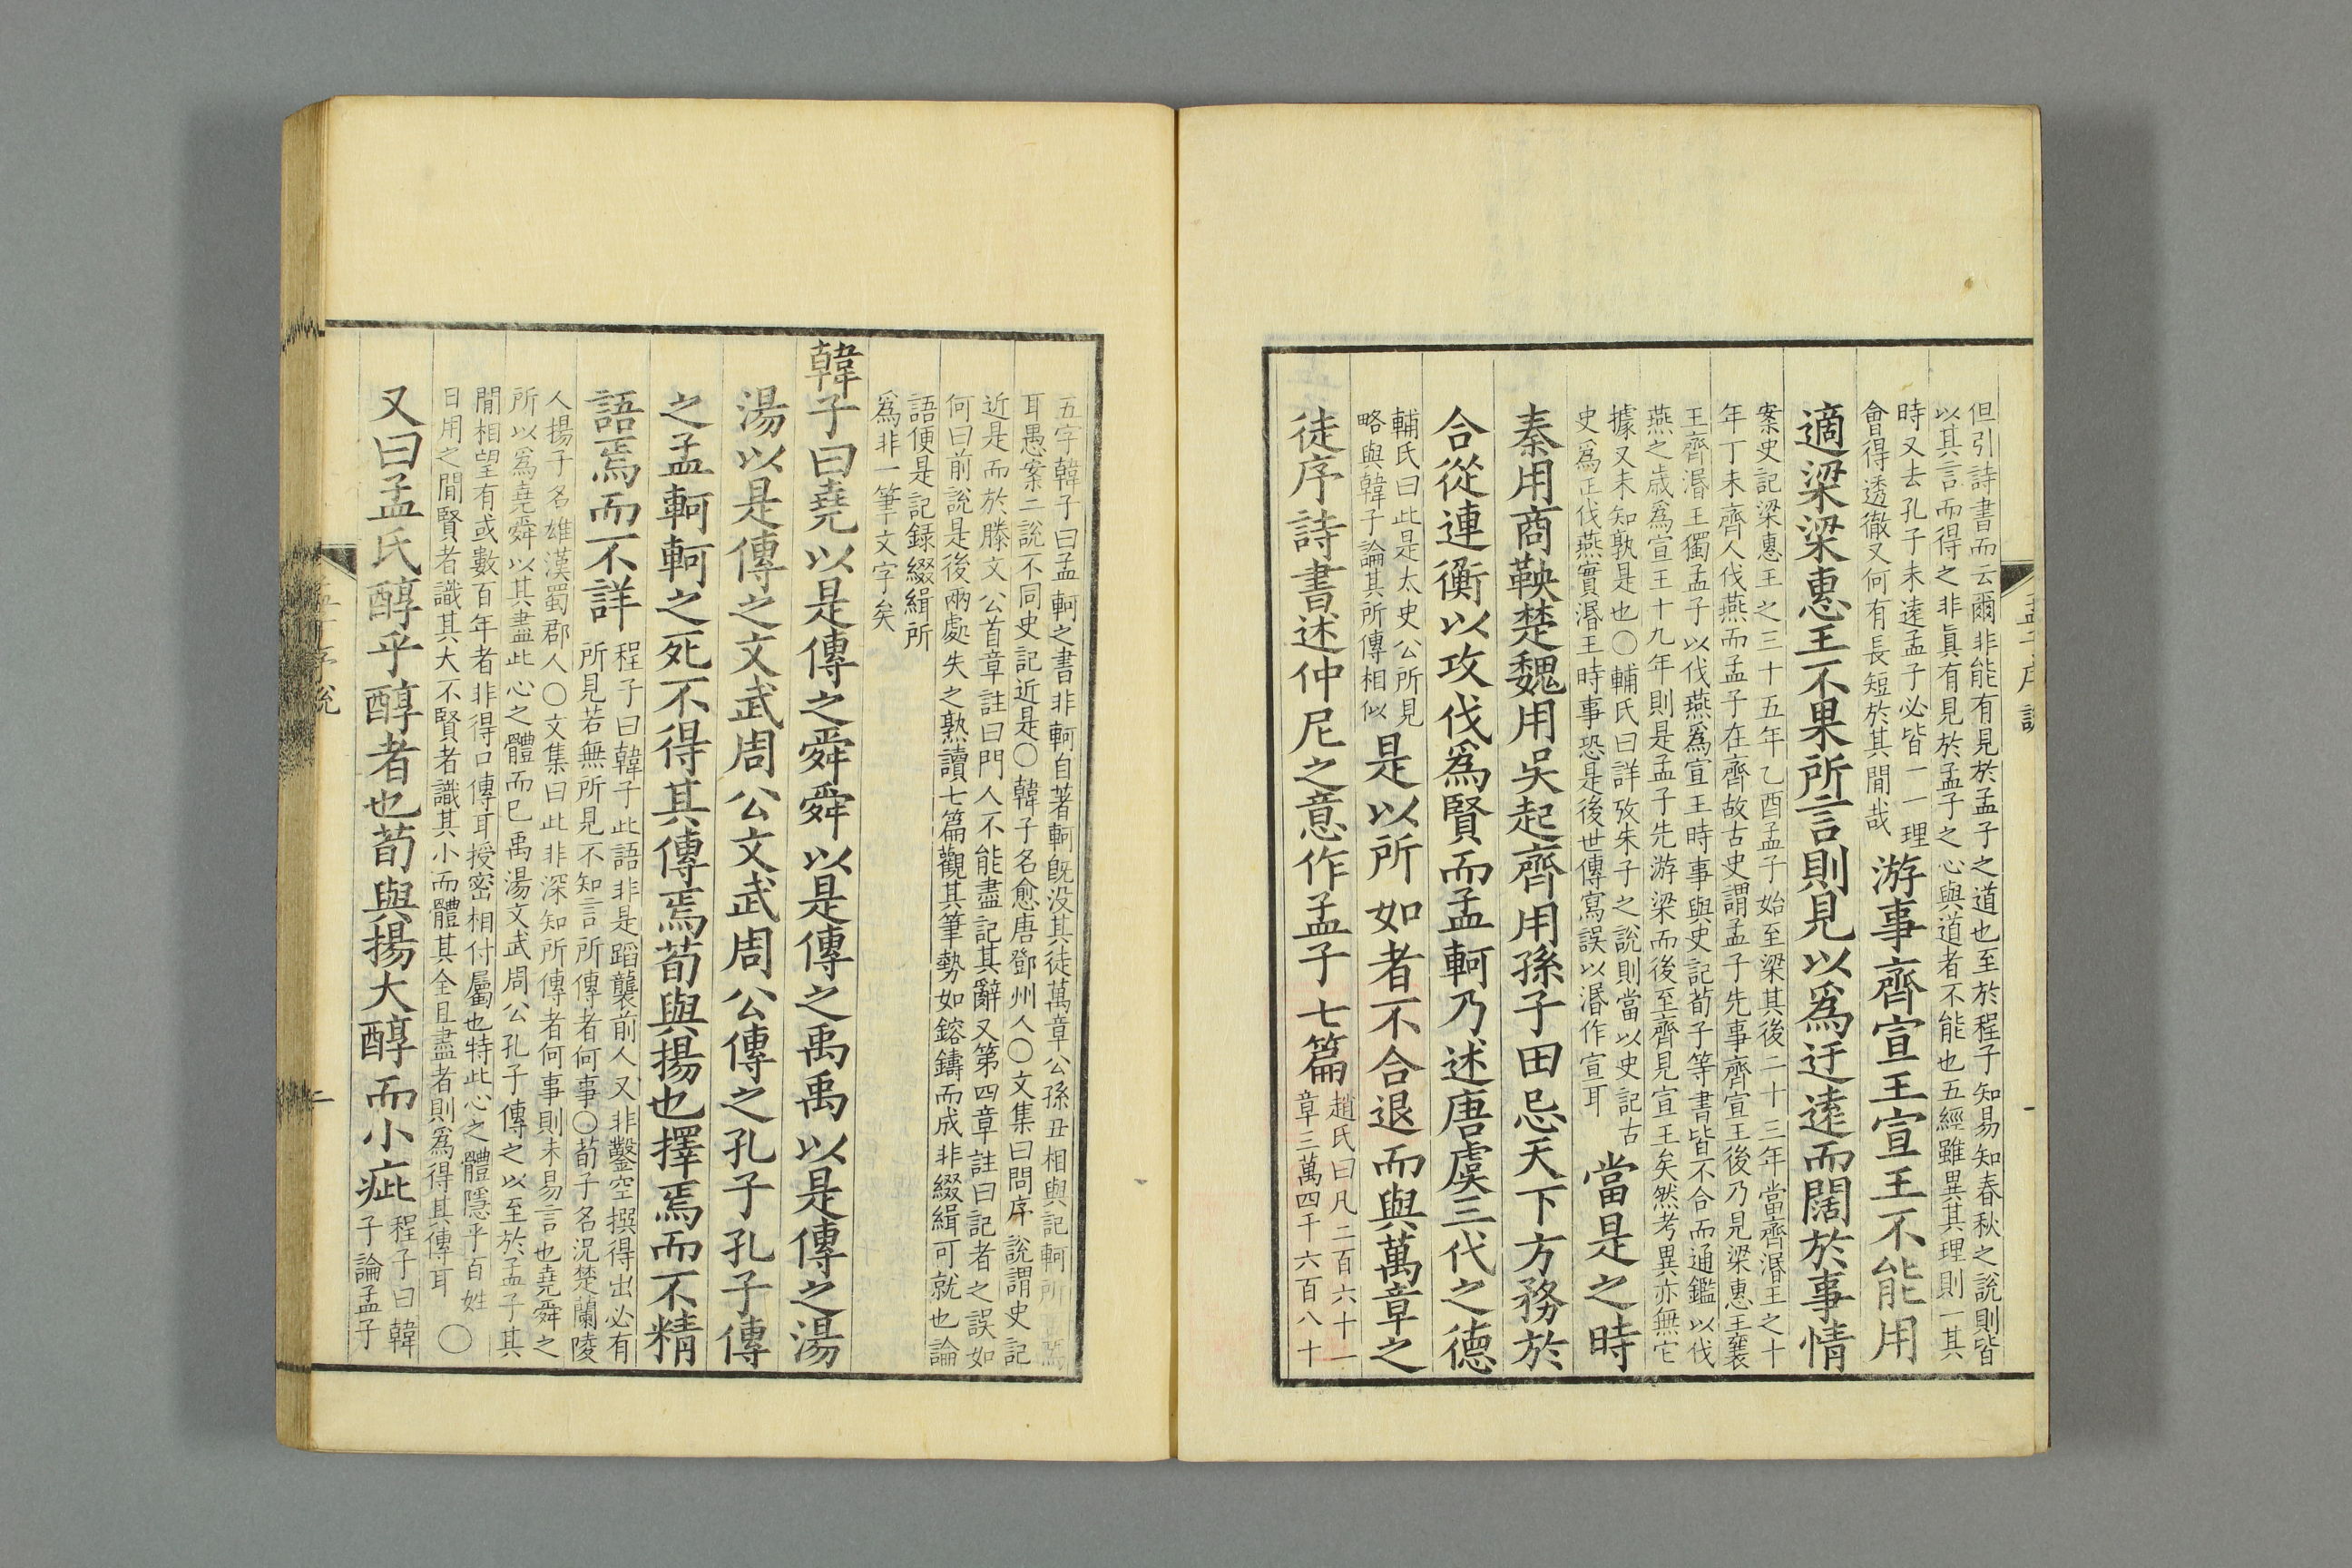 但引詩書而云爾非能有見於孟子之道也至於程子知易知春秋之說則皆
以其言而得之非眞有見於孟子之心與道者不能也五經雖異其理則一其
時又去孔子未遠孟子必皆一一理
會得透徹又何有長短於其閒哉
游事齊宣王宣王不能用
適梁梁惠王不果所言則見以爲迂遠而闊於事情
案史記梁惠王之三十五年乙酉孟子始至梁其後二十三年當齊湣王之十
年丁未齊人伐燕而孟子在齊故古史謂孟子先事齊宣王後乃見梁惠王襄
王齊湣王獨孟子以伐燕爲宣王時事與史記荀子等書皆不合而通鑑以伐
燕之歲爲宣王十九年則是孟子先游梁而後至齊見宣王矣然考異亦無它
據又未知孰是也○輔氏曰詳攷朱子之說則當以史記古
史爲正伐燕實湣王時事恐是後世傳寫誤以湣作宣耳
當是之時
秦用商鞅楚魏用吳起齊用孫子田忌天下方務於
合從連衡以攻伐爲賢而孟軻乃述唐虞三代之德
是以所如者不合退而與萬章之
輔氏曰此是太史公所見
略與韓子論其所傳相似
徒序詩書述仲尼之意作孟子七篇
趙氏曰凡二百六十一
章三萬四千六百八十
孟子序說
一
五字韓子曰孟軻之書非軻自著軻旣没其徒萬章公孫丑相與記軻所言焉
耳愚案二說不同史記近是○韓子名愈唐鄧州人○文集曰問序說謂史記
近是而於滕文公首章註曰門人不能盡記其辭又第四章註曰記者之誤如
何曰前說是後兩處失之熟讀七篇觀其筆勢如鎔鑄而成非綴緝可就也論
語便是記録綴緝所
爲非一筆文字矣
韓子曰堯以是傳之舜舜以是傳之禹禹以是傳之湯
湯以是傳之文武周公文武周公傳之孔子孔子傳
之孟軻軻之死不得其傳焉荀與揚也擇焉而不精
語焉而不詳
程子曰韓子此語非是蹈襲前人又非鑿空撰得出必有
所見若無所見不知言所傳者何事○荀子名况楚蘭陵
人揚子名雄漢蜀郡人○文集曰此非深知所傳者何事則未易言也堯舜之
所以爲堯舜以其盡此心之體而已禹湯文武周公孔子傳之以至於孟子其
閒相望有或數百年者非得口傳耳授密相付屬也特此心之體隱乎百姓
日用之閒賢者識其大不賢者識其小而體其全且盡者則爲得其傳耳○
又曰孟氏醇乎醇者也荀與揚大醇而小疵
程子曰韓
子論孟子
序說
二